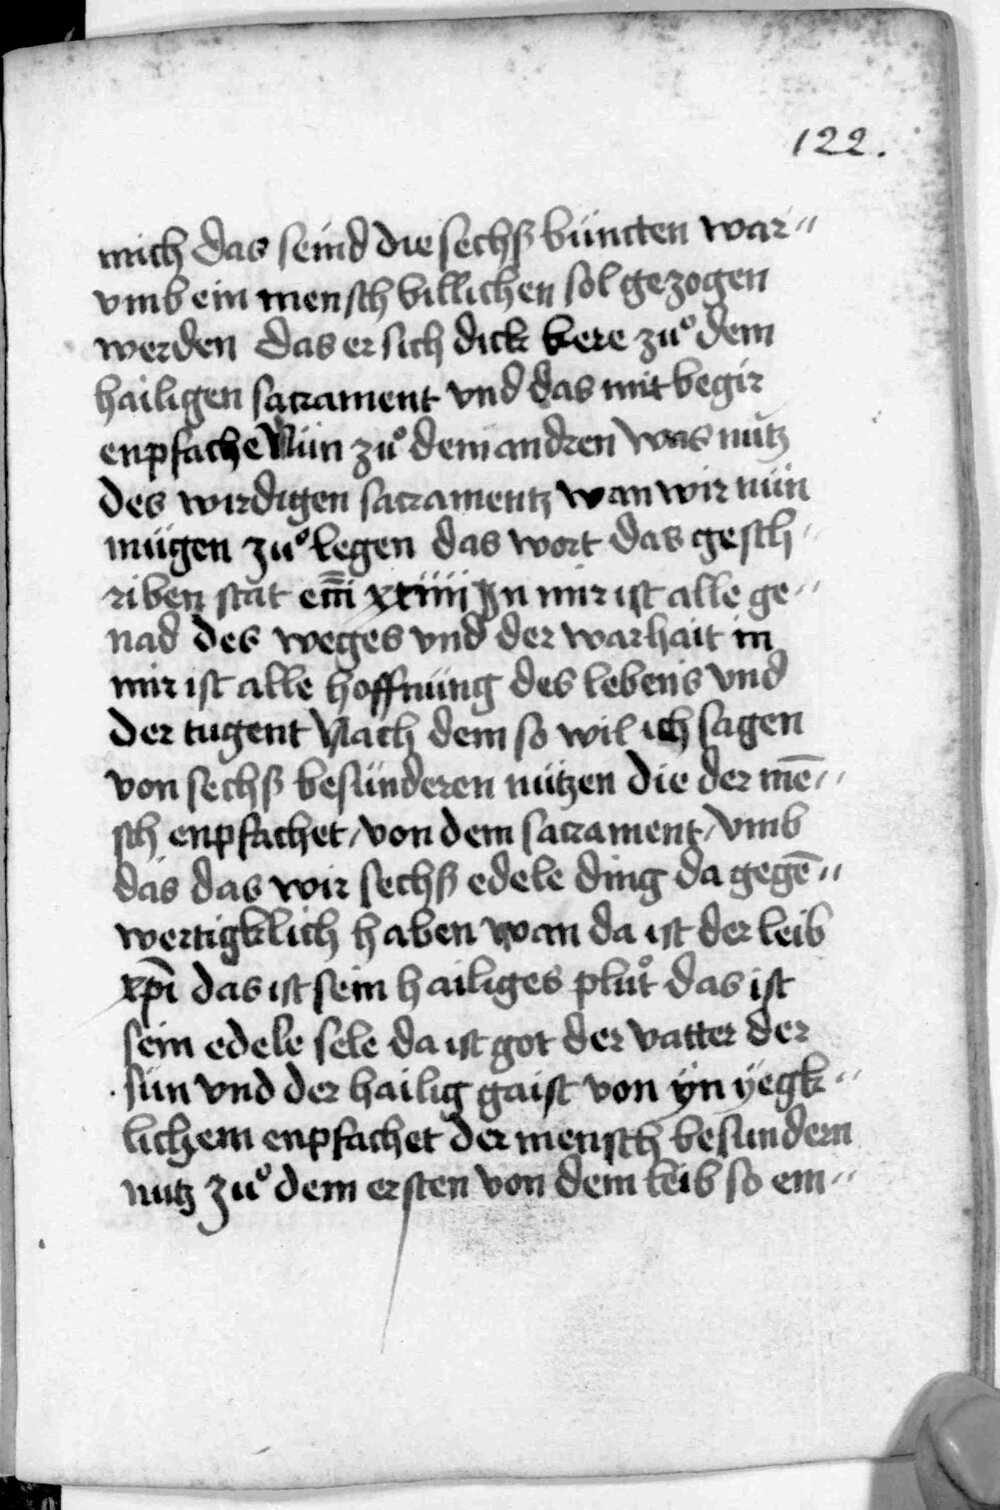 122.
mich das seind die sechß büncten war〃
vmb ein mensch billichen sol gezogen
werden das er sich dick kere zuͦ dem
hailigen sacrament vnd das mit begir
enpfache Nün zuͦ dem andren was nütz
des wirdigen sacramentz wan wir nün
mügen zuͦ legen das wort das gesch〃
riben stat xxiiii In mir ist alle ge〃
nad des weges vnd der warhait in
mir ist alle hoffnüng des lebens vnd
der tugent Nach dem so wil ich sagen
von sechß besünderen nützen die der mē〃
sch enpfachet / von dem sacrament / vmb
das das wir sechß edele ding da gegē〃
wertigklich haben wan da ist der leib
xp̄i das ist sein hailiges pluͦt das ist
sein edele sele da ist got der vatter der
sün vnd der hailig gaist von yn yegk〃
lichem enpfachet der mensch besundern
nutz zuͦ dem ersten von dem leib so em〃